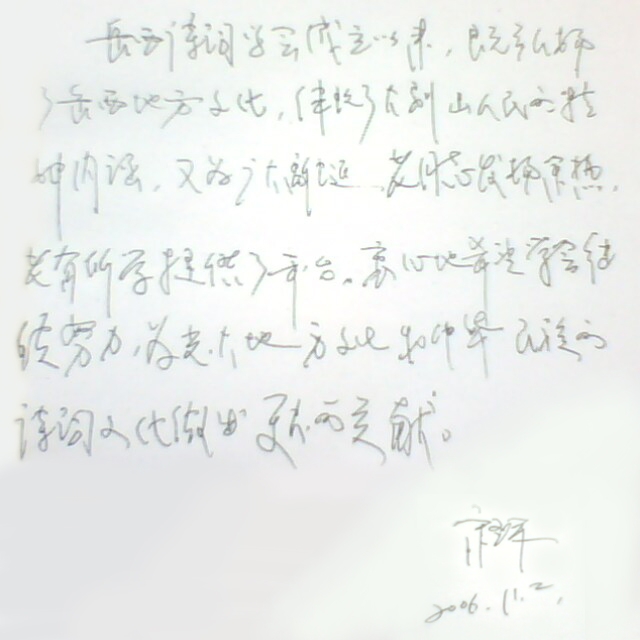 岳西诗词学会成立以来，既弘扬
了岳西地方文化，传承了大别山人民的精
神内涵，又为广大离退、老同志发挥余热，
老有所学提供了平台。衷心地希望学会继
续努力，为光大地方文化和中华民族的
诗词文化做出更大的贡献。
2006.11.2.